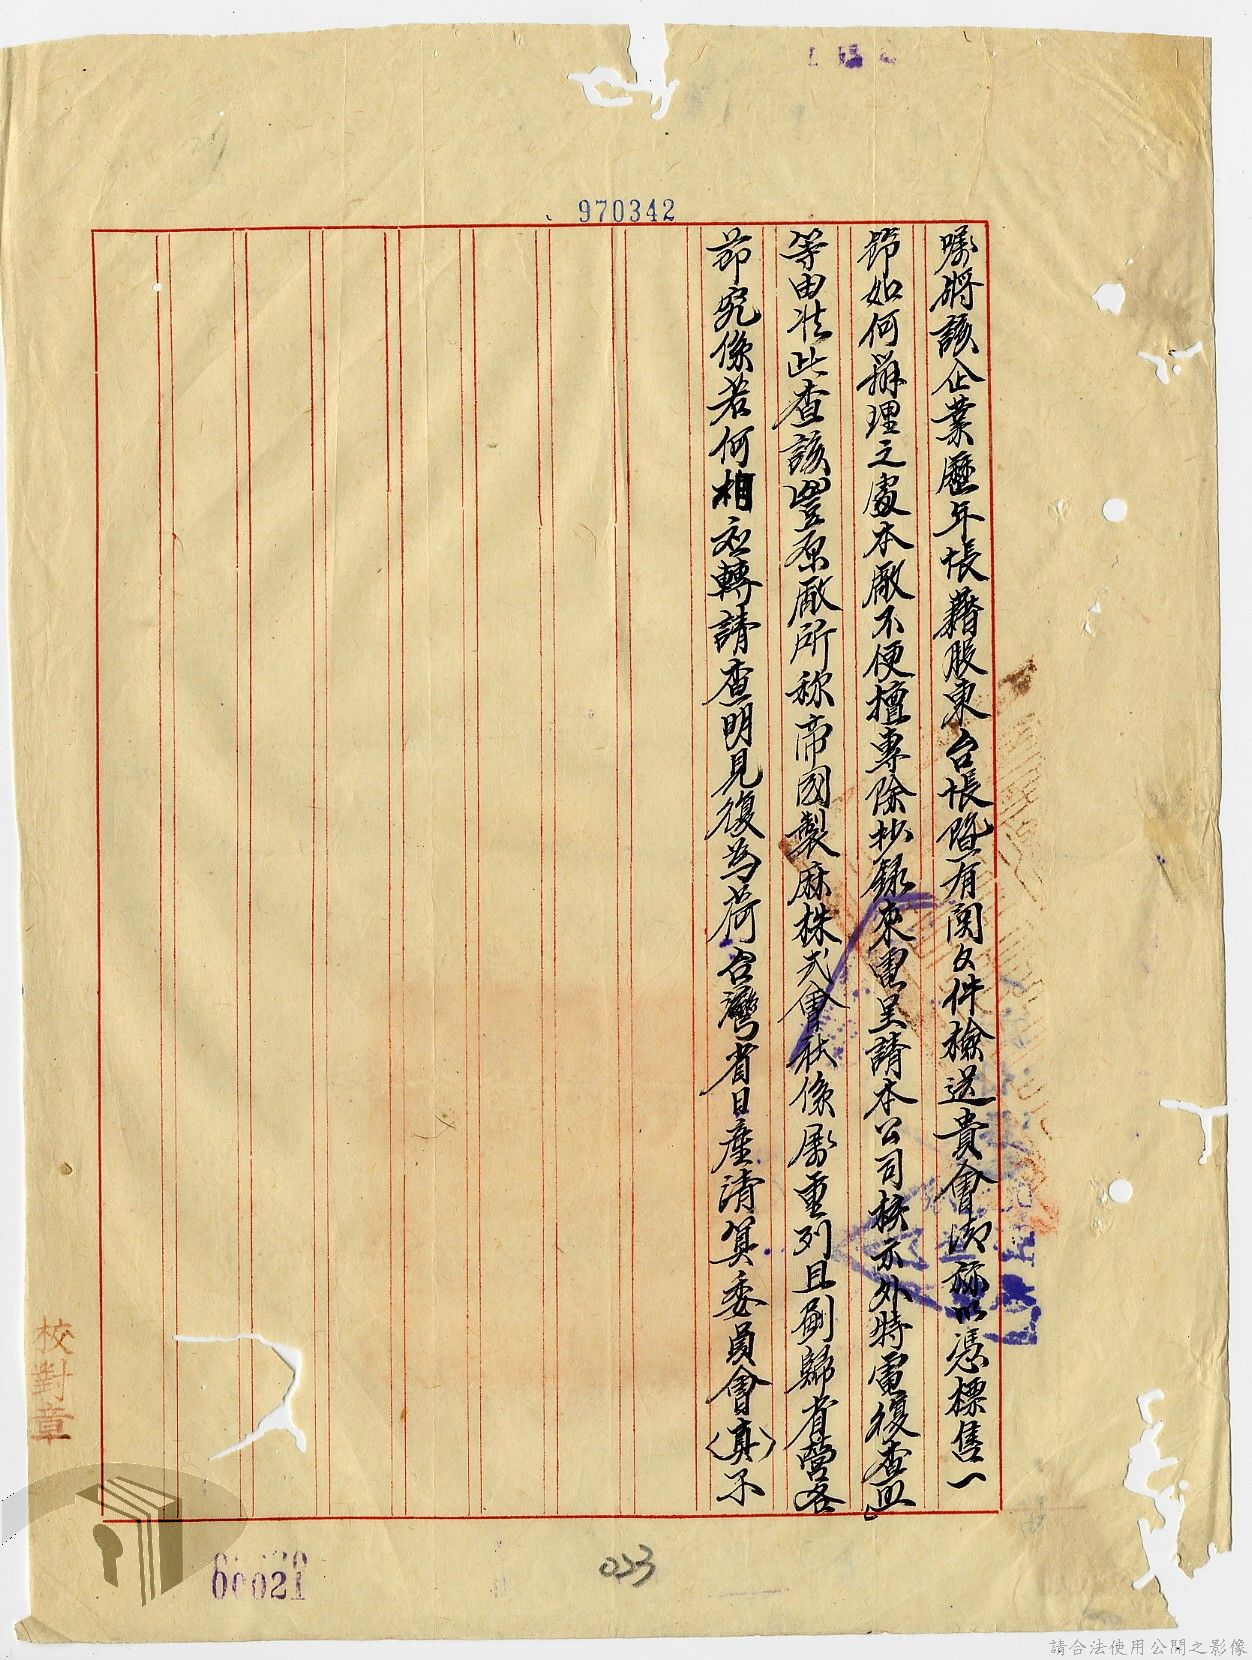 970342
嘱將該企業歷年帳藉股東台帳暨有関文件檢送貴會清祘以憑標售一
節如何辦理之處本廠不便擅專除抄錄來電呈請本公司核示外特電復查照
等由准此查該豐原廠所称帝國製麻株式會社係屬重列且劃歸省營各
節究係若何相应轉請查明見復為荷台灣省日產清算委員會(真)子
校對章
00021
023
請合法使用公開之影像